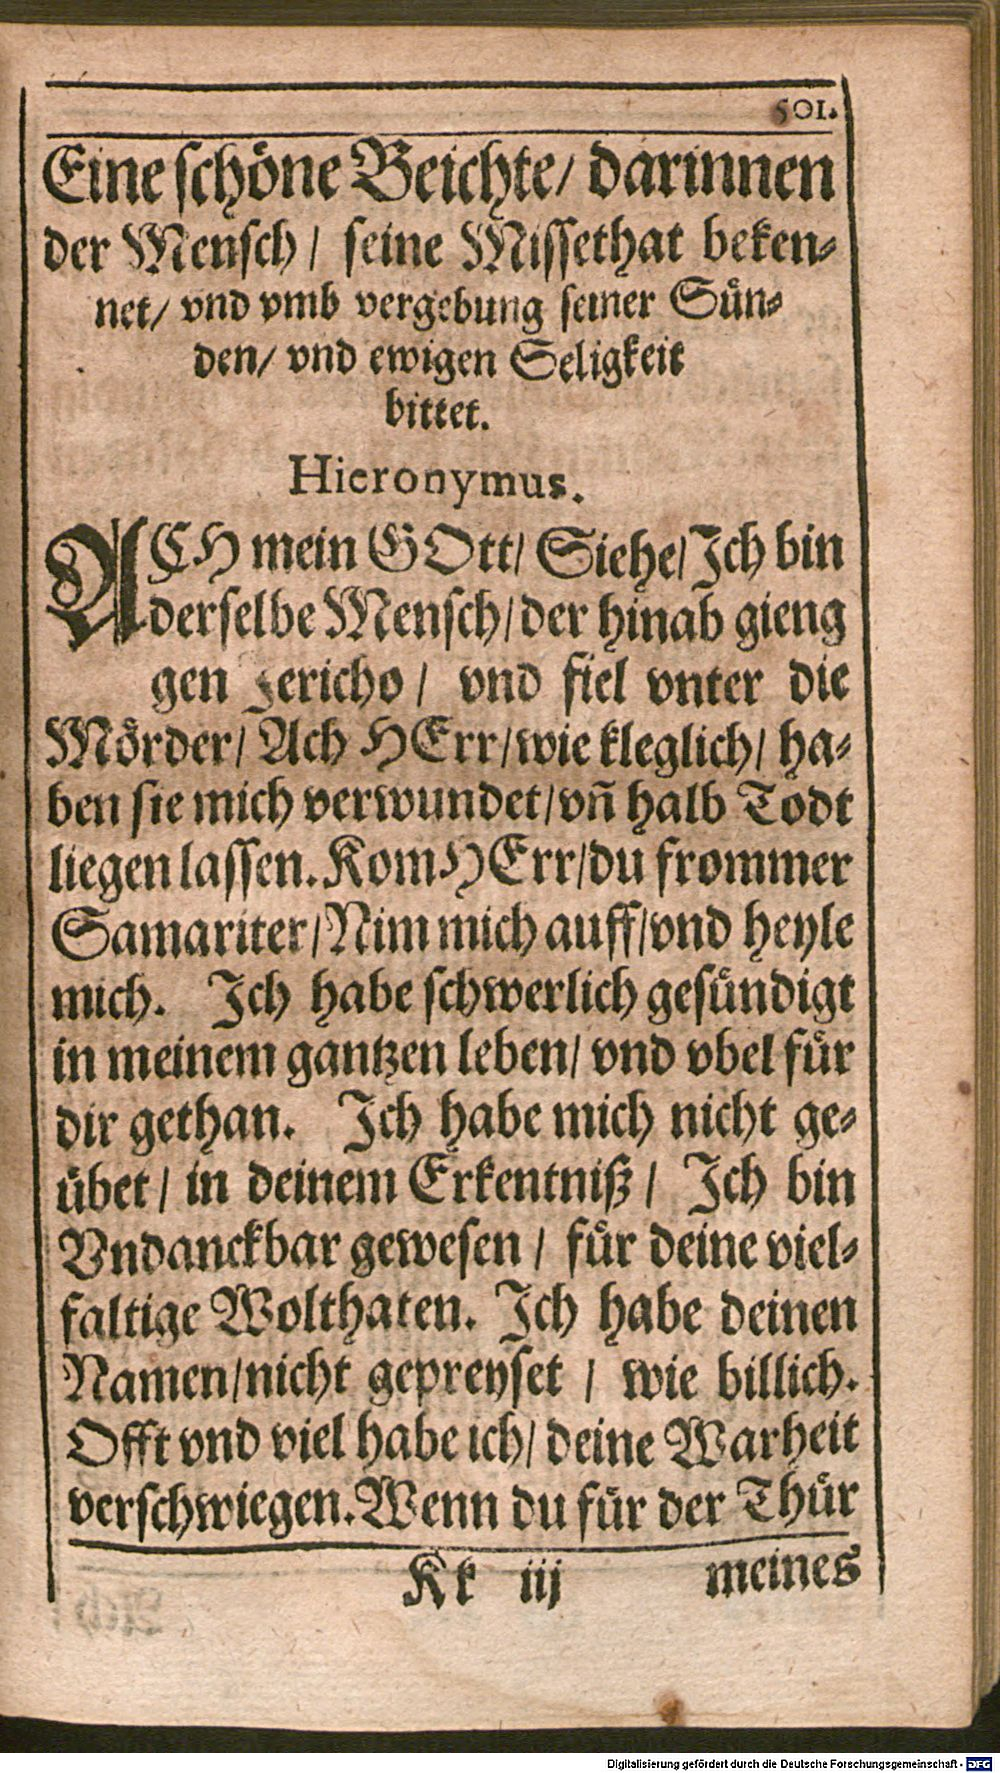 501.
Eine schöne Beichte/ darinnen
der Mensch/ seine Missethat beken-
net/ vnd vmb vergebung seiner Sün-
den/ vnd ewigen Seligkeit
bittet.
Hieronymus.
ACH mein GOtt/ Siehe/ Ich bin
derselbe Mensch/ der hinab gieng
gen Jericho/ vnd fiel vnter die
Mörder/ Ach HErr/ wie kleglich/ ha-
ben sie mich verwundet/ vñ halb Todt
liegen lassen. Kom HErr/ du frommer
Samariter/ Nim mich auff/ vnd heyle
mich. Ich habe schwerlich gesündigt
in meinem gantzen leben/ vnd vbel für
dir gethan. Ich habe mich nicht ge-
übet/ in deinem Erkentniß/ Ich bin
Vndanckbar gewesen/ für deine viel-
faltige Wolthaten. Ich habe deinen
Namen/ nicht gepreyset/ wie billich.
Offt vnd viel habe ich/ deine Warheit
verschwiegen. Wenn du für der Thür
Kk iij meines
Digitalisierung gefördert durch die Deutsche Forschungsgemeinschaft - DFG